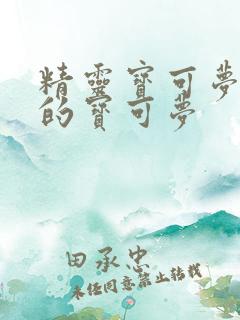 精靈寶可夢
的寶可夢
田承忠
未經同意禁止轉載